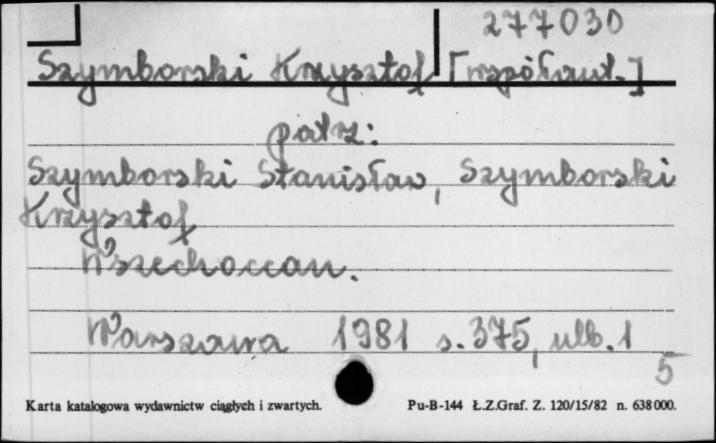 277030
Szymborski Krzysztof [współaut.]
patrz:
Szymborski Stanisław, Szymborski
Krzysztof
Wszechocean.
Warszawa 1981 s. 375, ulb. 1
5
Karta katalogowa wydawnictw ciągłych i zwartych. Pu-B-144 Ł.Z.Graf. Z. 120/15/82 n. 638000.